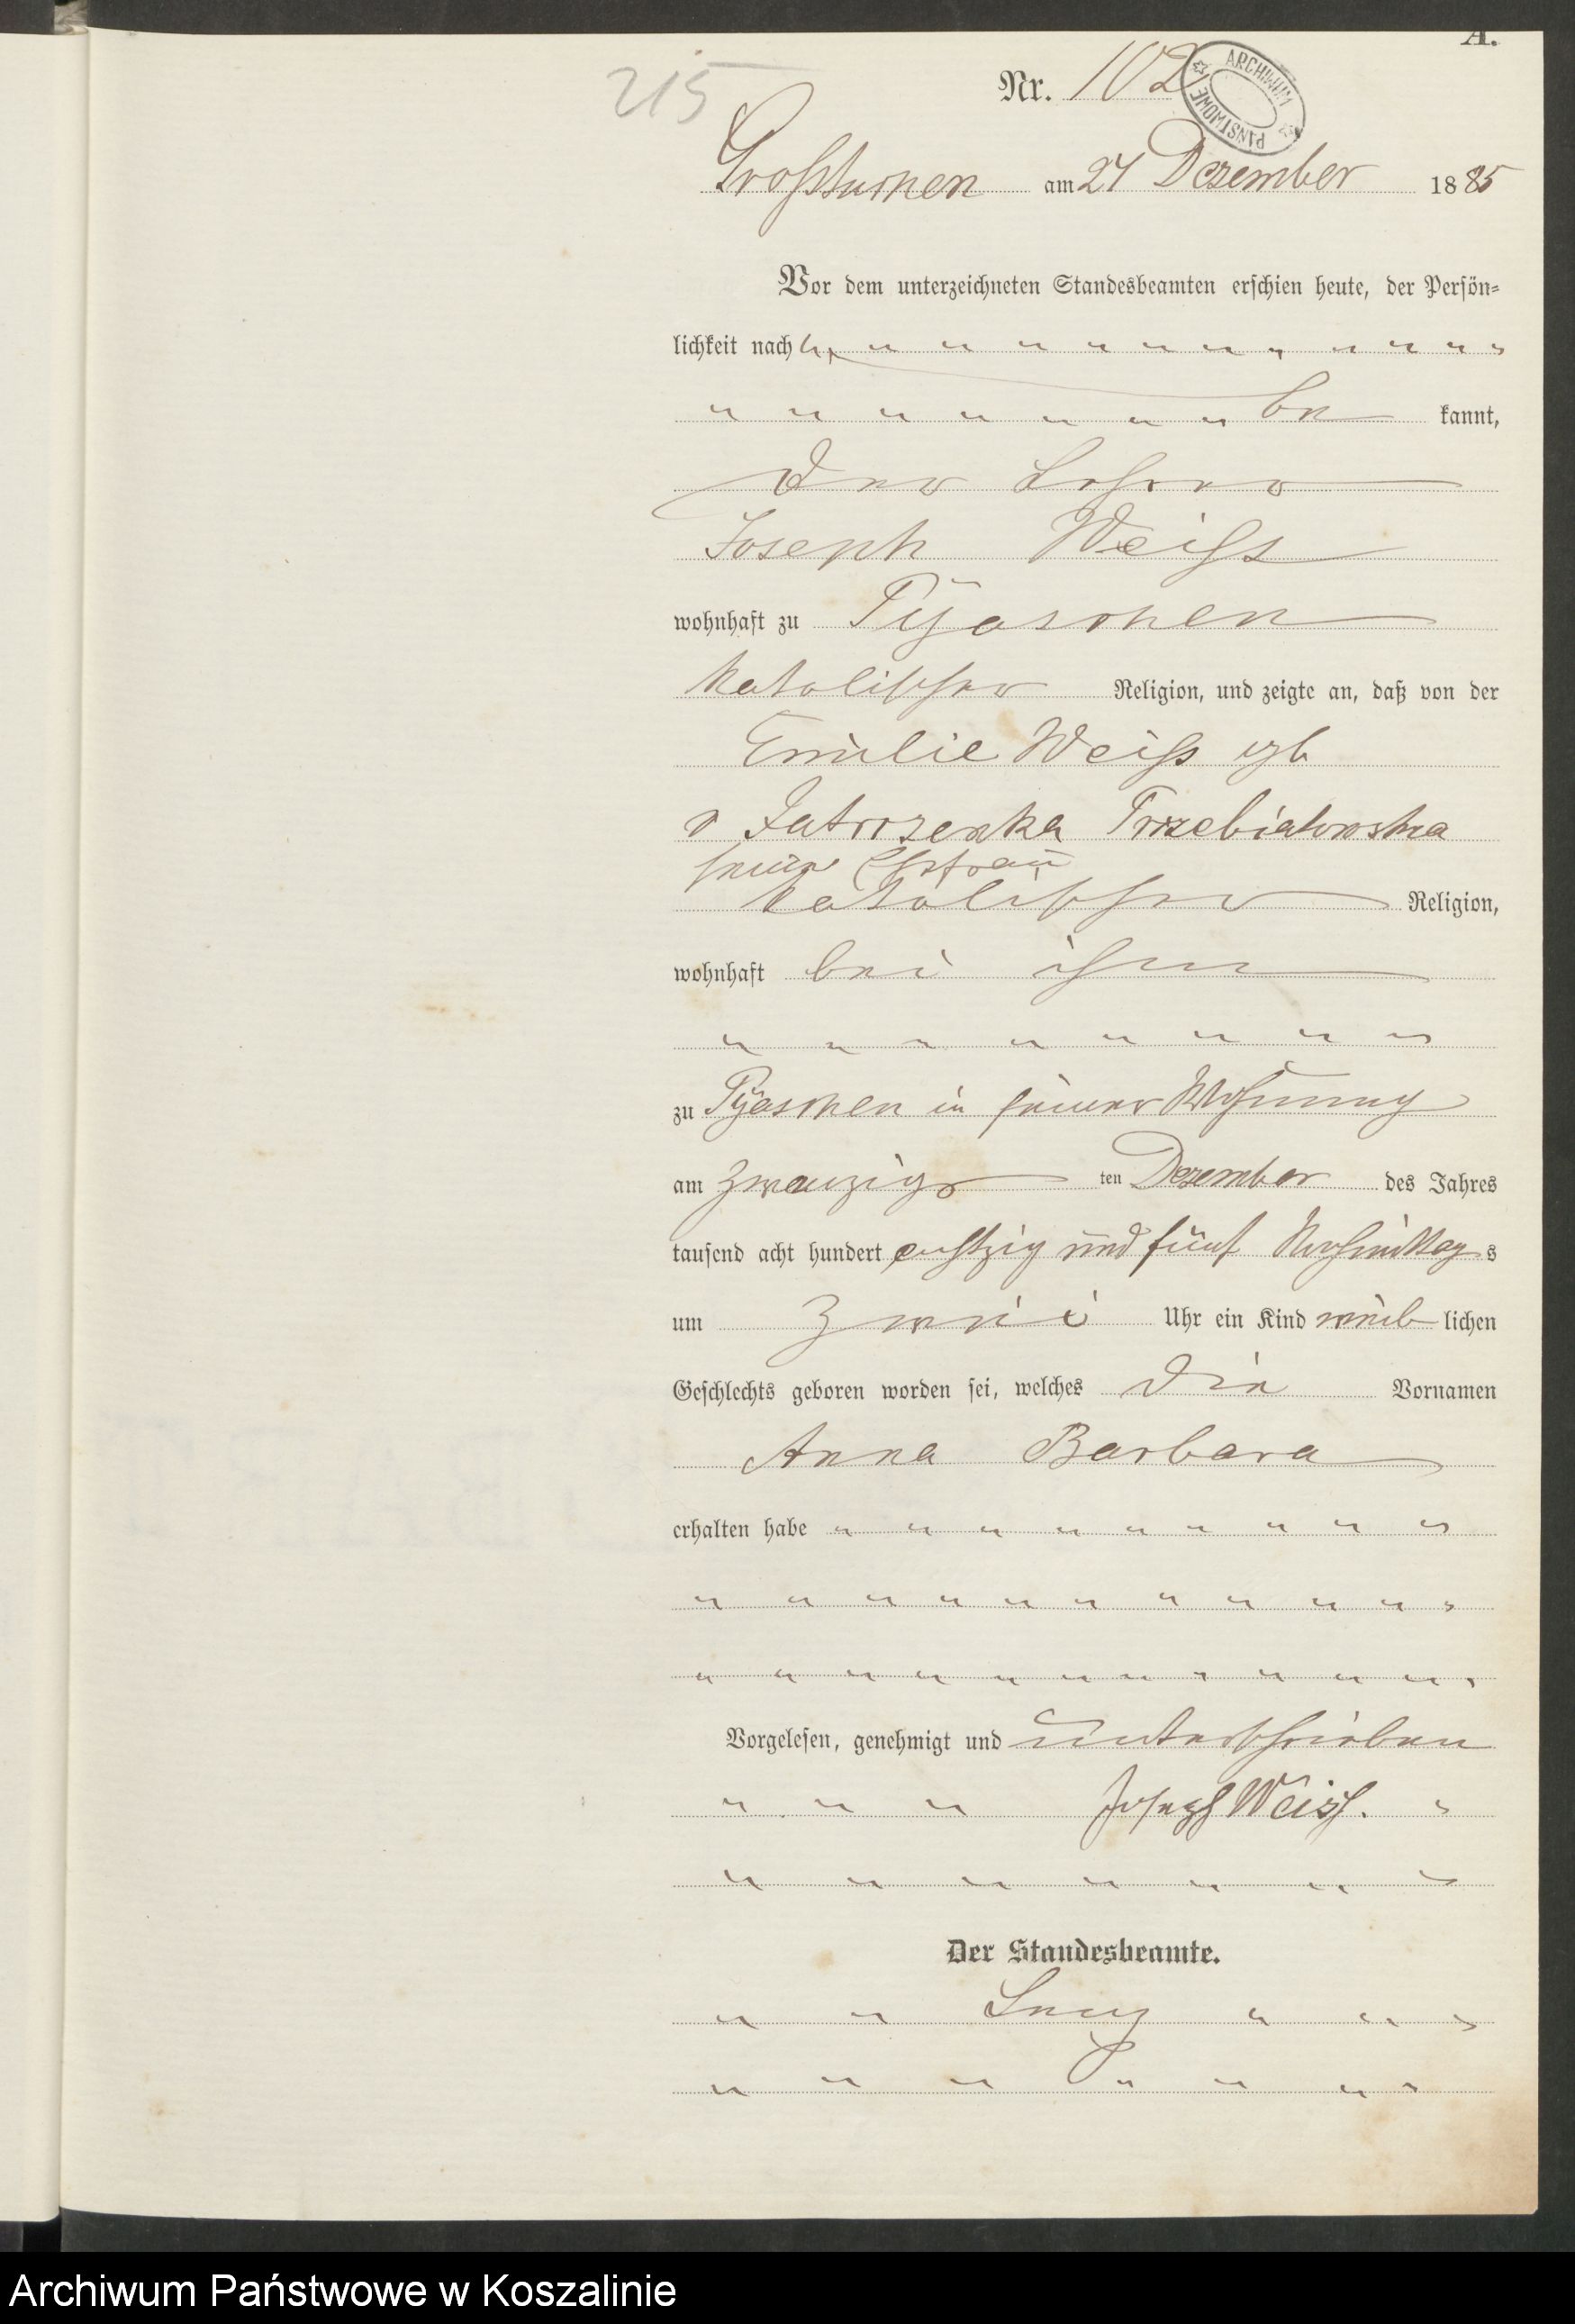 A.
215
Nr. 102
ARCHIWUM PAŃSTWOWE
Großtuchen am 24 Dezember 1885
Vor dem unterzeichneten Standesbeamten erschien heute, der Persön-
lichkeit nach
be kannt,
der Lehrer
Joseph Weiss
wohnhaft zu Pyaschen
katolischer Religion, und zeigte an, daß von der
Emilie Weiss geb
v Jutrzenka Trzebiatowska
seiner Ehefrau
katolischer Religion,
wohnhaft bei ihm
zu Pyaschen in seiner Wohnung
am zwanzigs ten Dezember des Jahres
tausend acht hundert achtzig und fünf Nachmittag s
um zwei Uhr ein Kind weib lichen
Geschlechts geboren worden sei, welches die Vornamen
Anna Barbara
erhalten habe
Vorgelesen, genehmigt und unterschrieben
Joseph Weiß.
Der Standesbeamte.
Archiwum Państwowe w Koszalinie